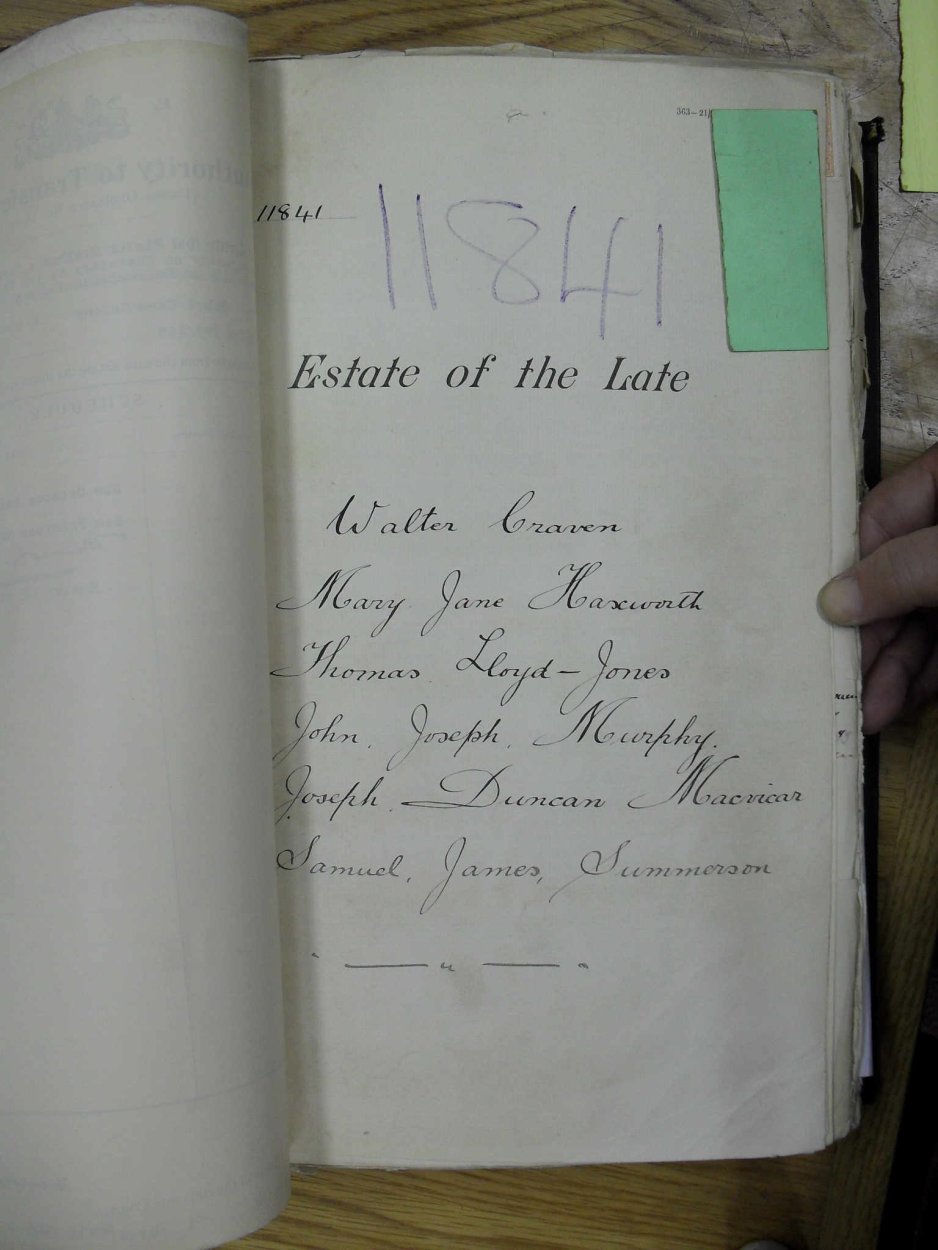 363—21
11841
11841
Estate of the Late
Walter Craven
Mary Jane Haxworth
Thomas Lloyd-Jones
John, Joseph, Murphy.
Joseph Duncan Macvicar
Samuel, James, Summerson